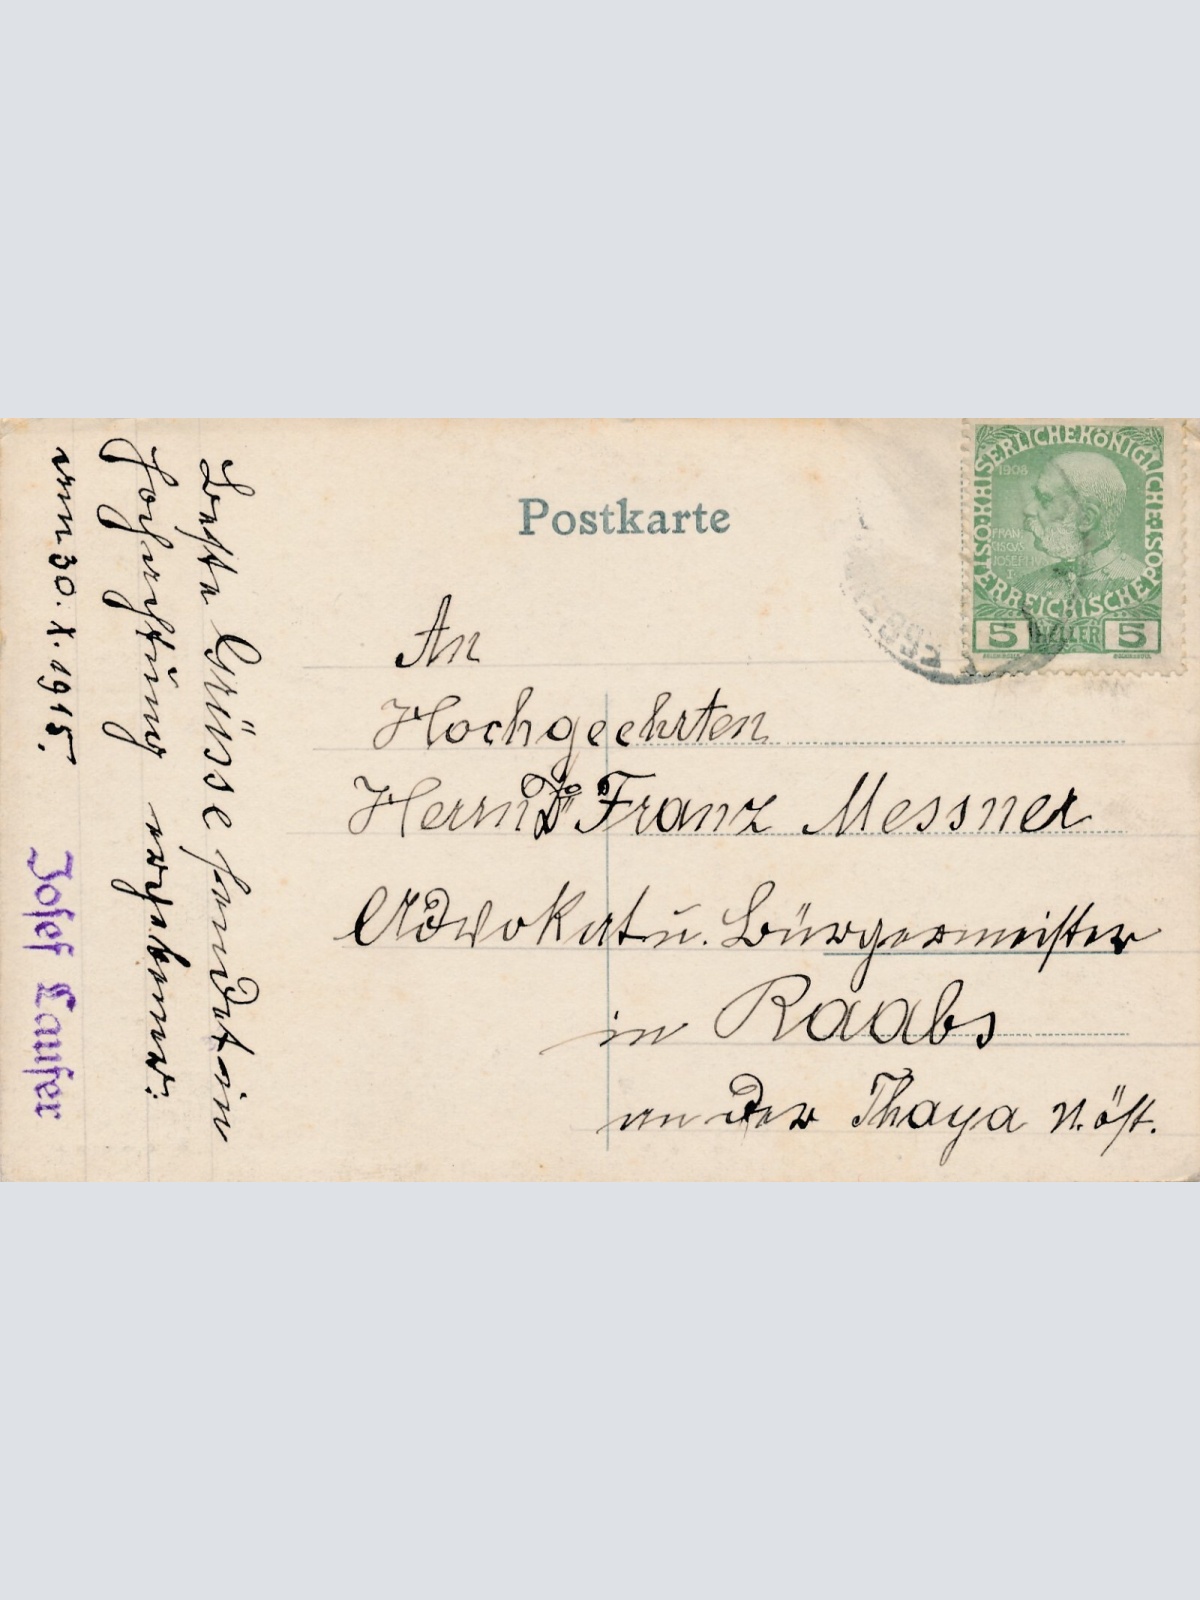 Postkarte
ÖSTERREICHISCHE POST
KAISERLICHE KÖNIGLICHE
1908
FRAN
CISCVS
JOSEPH
I
5 HELLER 5
An
Hochgeehrten
Herrn Dr Franz Messner
Advokat u. Bürgermeister
in Raabs
an der Thaya N.öst.
Beste Grüsse sendet in
Hochachtung ergebener:
am 30. X. 1915.
Josef Laufer